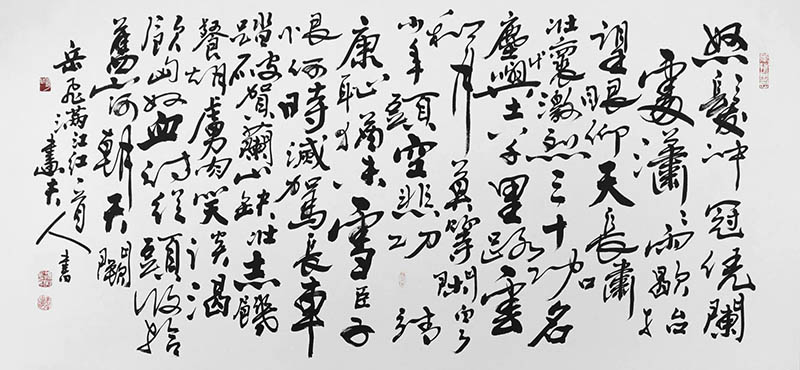 怒髮冲冠凭闌
處瀟瀟雨歇抬
望眼仰天長嘯
壯懷激烈三十功名
塵與土八千里路雲
和月莫等閑白了
少年頭空悲切靖
康恥猶未雪臣子
恨何時滅駕長車
踏破賀蘭山缺壯志饑
餐胡虜肉笑談渴
飲匈奴血待從頭收拾
舊山河朝天闕
岳飛滿江紅一首
人書